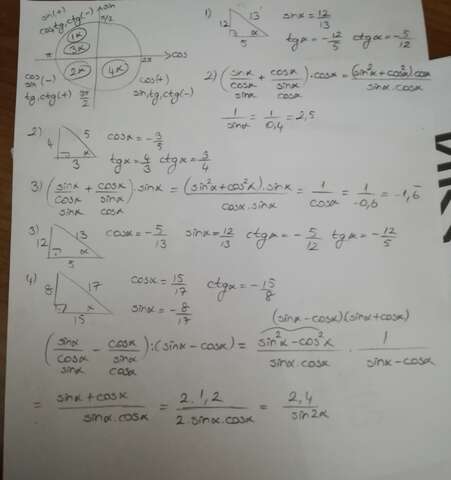 sin(+)
cos,tg,ctg(-)
sin
π/2
1x
3x
π
2x
4x
2π
cos
cos
sin (-)
tg,ctg(+)
3π/2
cos(+)
sin,tg,ctg(-)
1) 12 13 5 α sinα = 12/13
tgα = -12/5 ctgα = -5/12
2) (sinα/cosα/sinα + cosα/sinα/cosα).cosα = (sin²α+cos²α).cosα/sinα.cosα
1/sinα = 1/0,4 = 2,5
2) 4 5 3 α cosα = -3/5
tgα = 4/3 ctgα = 3/4
3) (sinα/cosα/sinα + cosα/sinα/cosα).sinα = (sin²α+cos²α).sinα/cosα.sinα = 1/cosα = 1/-0,6 = -1,6
3) 12 13 5 α cosα = -5/13 sinα = 12/13 ctgα = -5/12 tgα = -12/5
4) 8 17 15 α cosα = 15/17 ctgα = -15/8
sinα = -8/17
(sinα-cosα)(sinα+cosα)
(sinα/cosα/sinα - cosα/sinα/cosα):(sinα-cosα) = sin²α-cos²α/sinα.cosα . 1/sinα-cosα
= sinα+cosα/sinα.cosα = 2.1,2/2.sinα.cosα = 2,4/sin2α